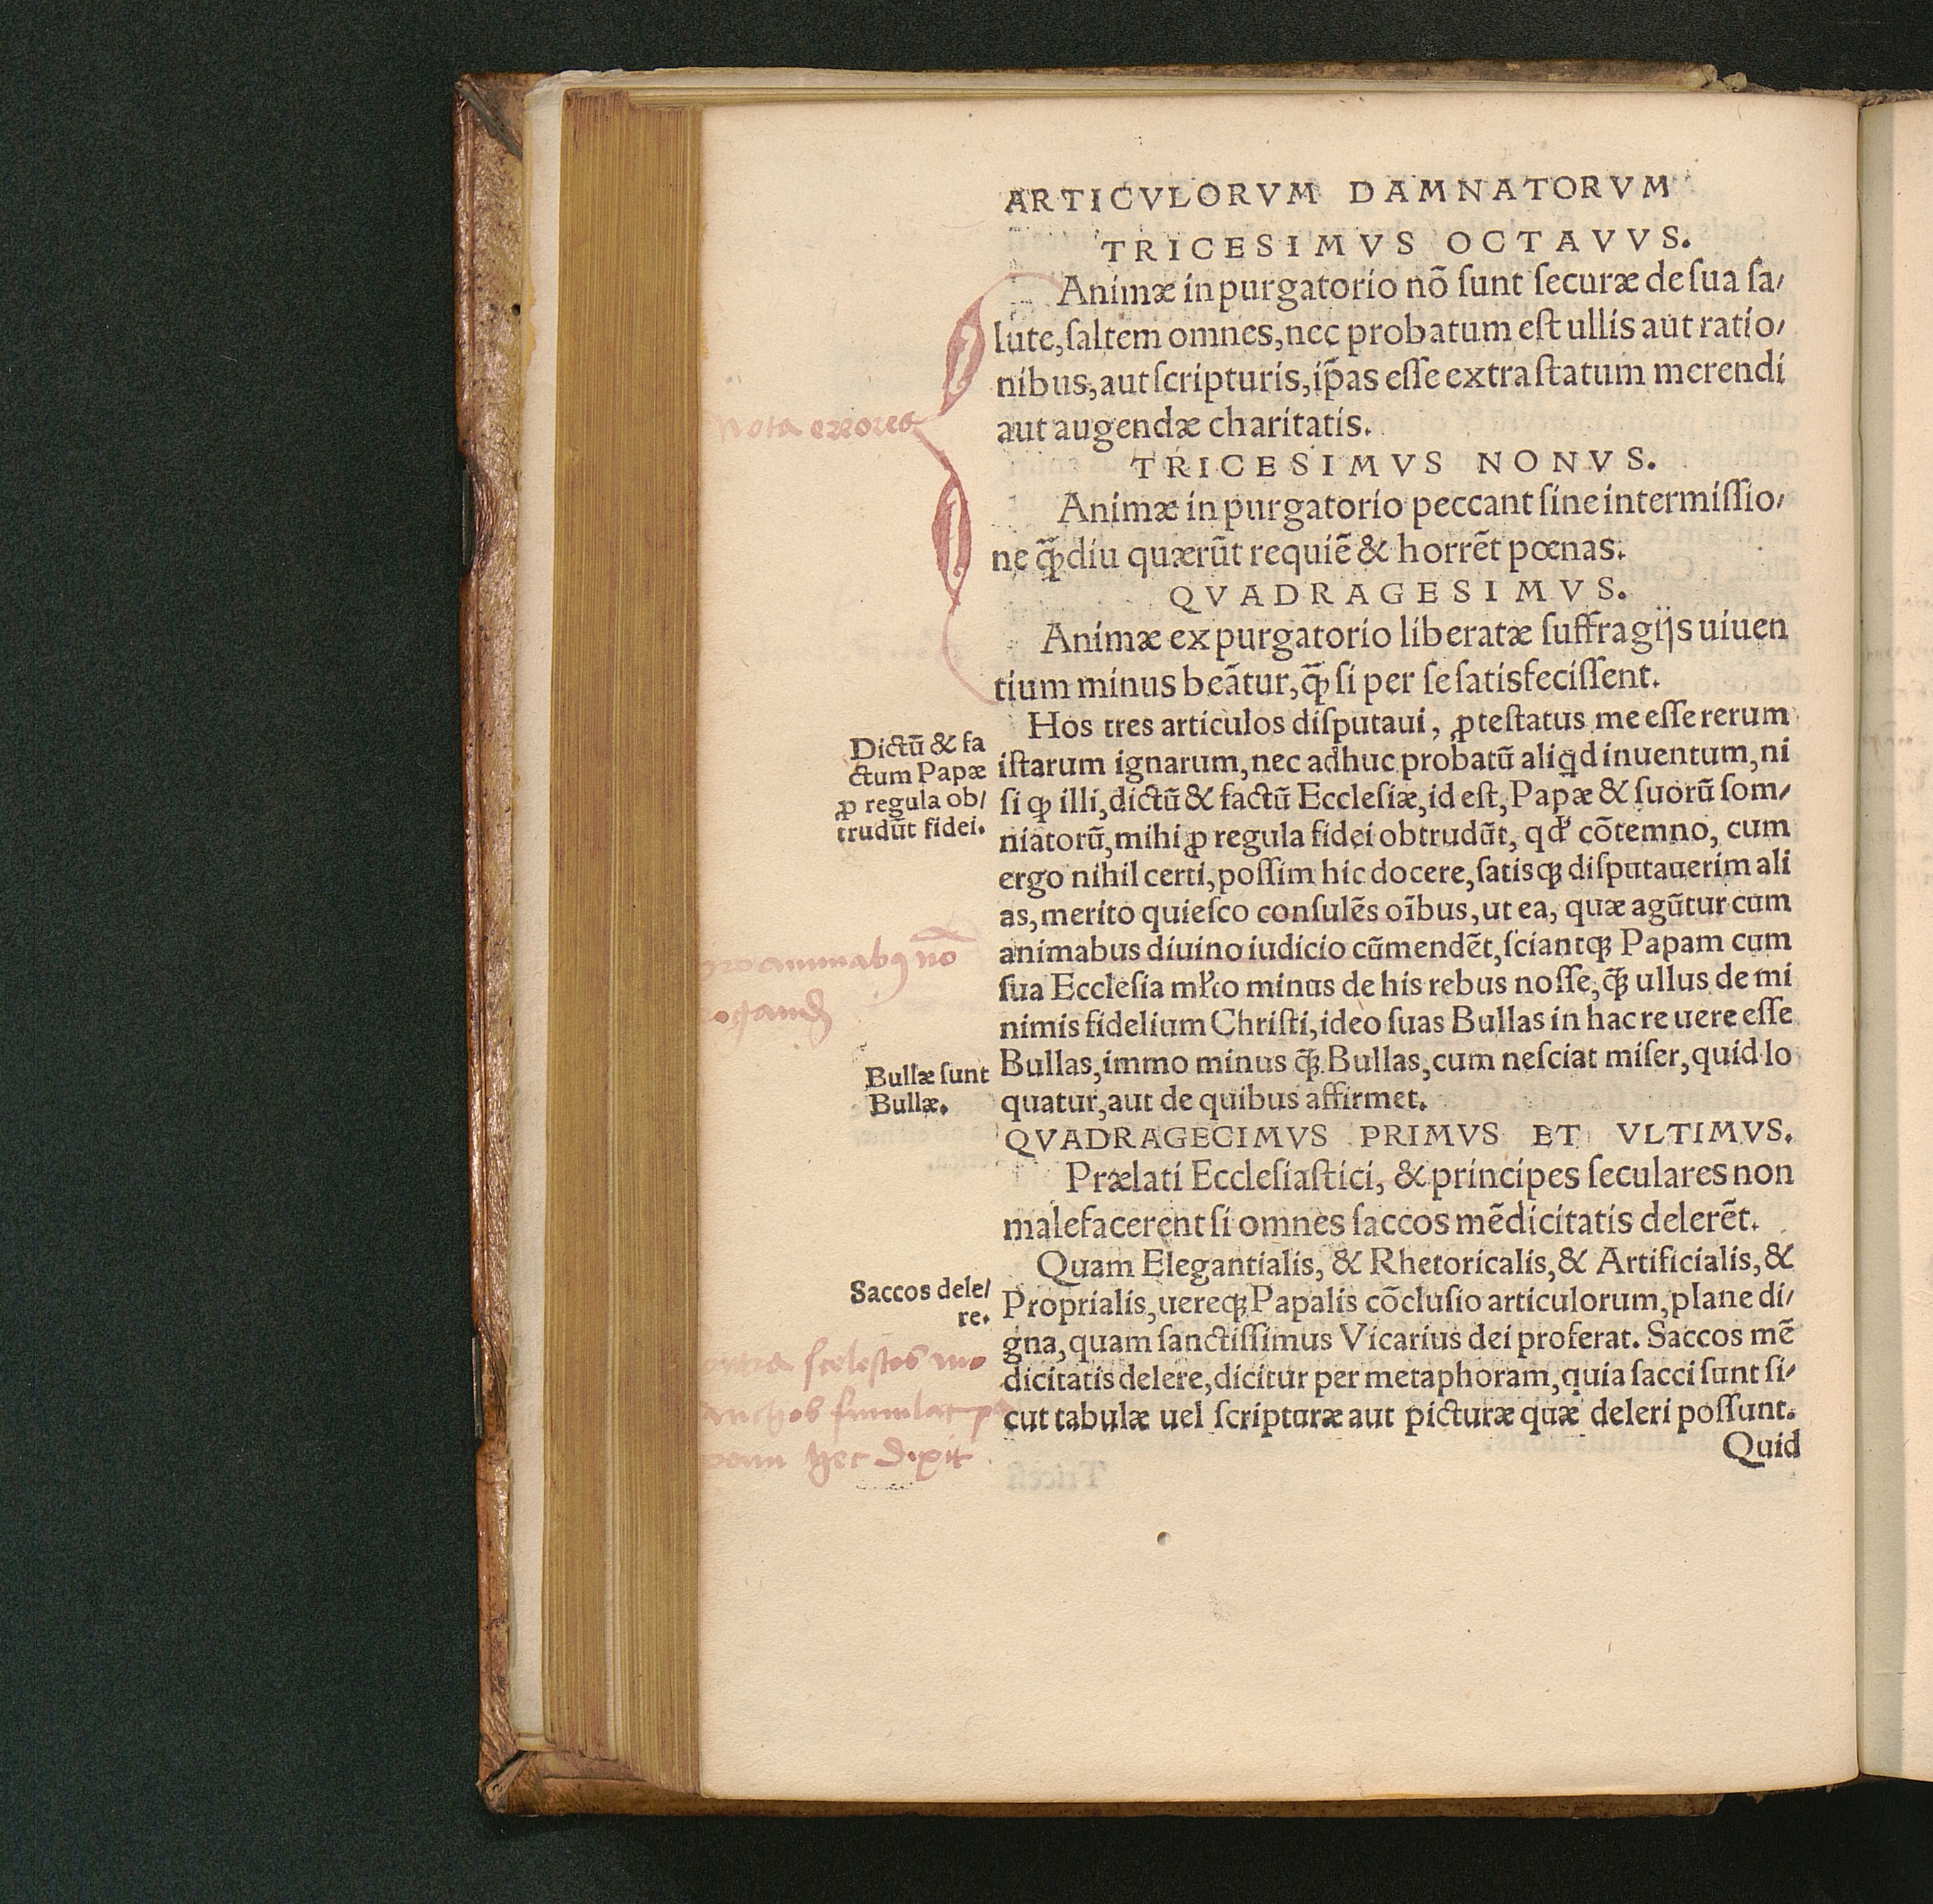 ARTICVLORVM DAMNATORVM
TRICESIMVS OCTAVVS.
Animæ in purgatorio nõ ſunt ſecuræ de ſua ſa/
lute, ſaltem omnes, nec probatum eſt ullis aut ratio/
nibus, aut ſcripturis, ip̃as eſſe extra ſtatum merendi
aut augendæ charitatis.
nota errores
TRICESIMVS NONVS.
Animæ in purgatorio peccant ſine intermiſſio/
ne q̃ꝫdiu quærũt requiẽ & horrẽt pœnas.
QVADRAGESIMVS.
Animæ ex purgatorio liberatæ ſuffragijs uiuen
tium minus beãtur, q̃ꝫ ſi per ſe ſatisfeciſſent.
Hos tres articulos diſputaui, ꝓteſtatus me eſſe rerum
iſtarum ignarum, nec adhuc probatũ aliqd inuentum, ni
ſi ꝙ illi, dictũ & factũ Eccleſiæ, id eſt, Papæ & ſuorũ ſom/
niatorũ, mihi ꝓ regula fidei obtrudũt, qd' cõtemno, cum
ergo nihil certi, poſſim hic docere, ſatisqꝫ diſputauerim ali
as, merito quieſco conſulẽs oĩbus, ut ea, quæ agũtur cum
animabus diuino iudicio cũmendẽt, ſciantqꝫ Papam cum
ſua Eccleſia młto minus de his rebus noſſe, q̃ꝫ ullus de mi
nimis fidelium Chriſti, ideo ſuas Bullas in hac re uere eſſe
Bullas, immo minus q̃ꝫ Bullas, cum neſciat miſer, quid lo
quatur, aut de quibus affirmet.
Dictũ & fa
ctum Papæ
ꝓ regula ob/
trudũt fidei.
animabꝰ nõ
Bullæ ſunt
Bullæ.
QVADRAGECIMVS PRIMVS ET VLTIMVS.
Prælati Eccleſiaſtici, & principes ſeculares non
malefacerent ſi omnes ſaccos mẽdicitatis delerẽt.
Quam Elegantialis, & Rhetoricalis, & Artificialis, &
Proprialis, uereqꝫ Papalis cõcluſio articulorum, plane di/
gna, quam ſanctiſſimus Vicarius dei proferat. Saccos mẽ
dicitatis delere, dicitur per metaphoram, quia ſacci ſunt ſi/
cut tabulæ uel ſcripturæ aut picturæ quæ deleri poſſunt.
Saccos dele/
re.
ſceleſtos mo
hec dixit
Quid